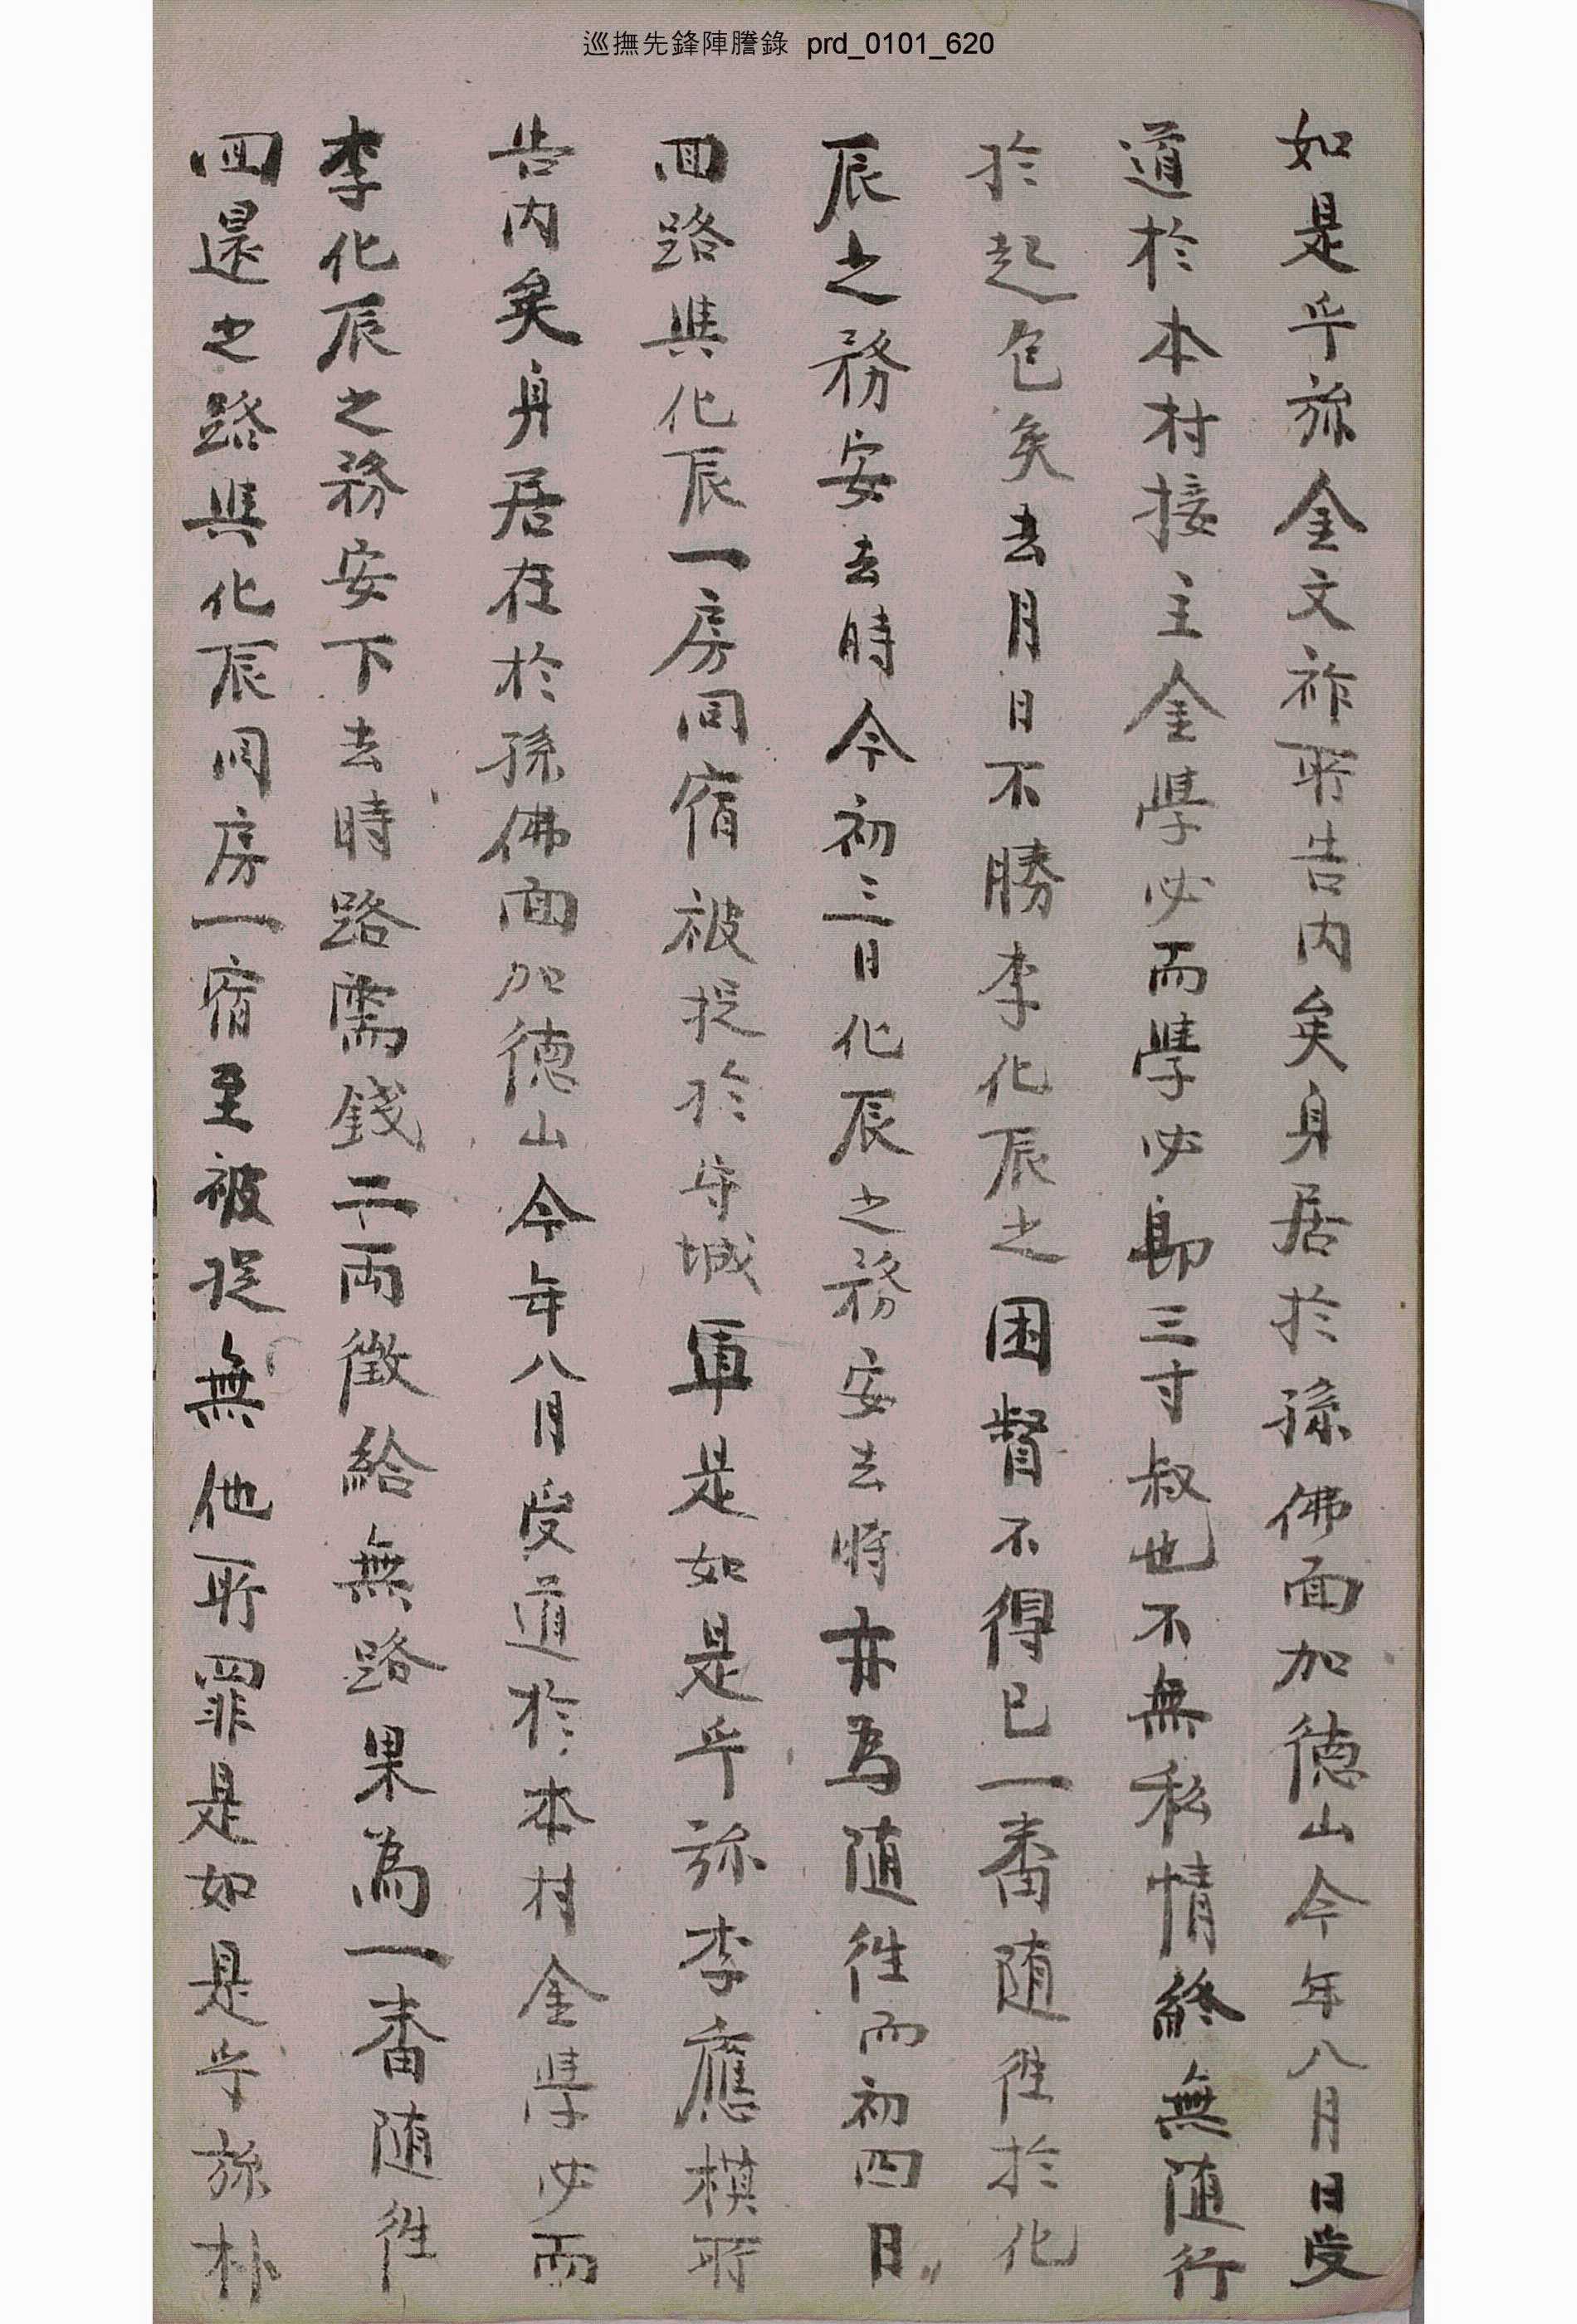 巡撫先鋒陣謄錄 prd_0101_620
如是乎旀金文祚所告內矣身居於孫佛面加德山今年八月日受
道於本村接主金學必而學必卽三寸叔也不無私情終無隨行
於起包矣去月日不勝李化辰之困督不得已一番随徃於化
辰之務安去時今初三日化辰之務安去時亦為随徃而初四日
回路與化辰一房同宿被捉於守城軍是如是乎旀李應模所
告內矣身居在於孫佛面加德山今年八月受道於本村金學必而
李化辰之務安下去時路需錢二両徵給無路果為一番随徃
回還之路與化辰同房一宿至被捉無他所罪是如是乎旀朴